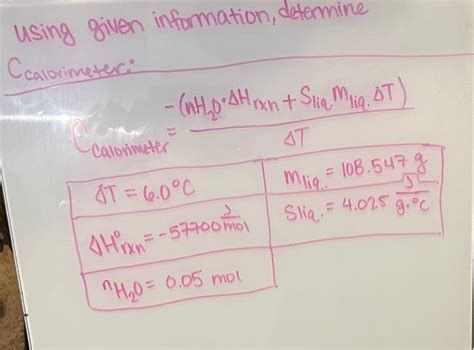 using given information, determine
Ccalorimeter:
Ccalorimeter = -(nH₂O·ΔHrxn + Sliq. mliq. ΔT) / ΔT
ΔT = 6.0°C
mliq. = 108.547 g
ΔH°rxn = -57700 J/mol
Sliq. = 4.025 J/g.°C
nH₂O = 0.05 mol